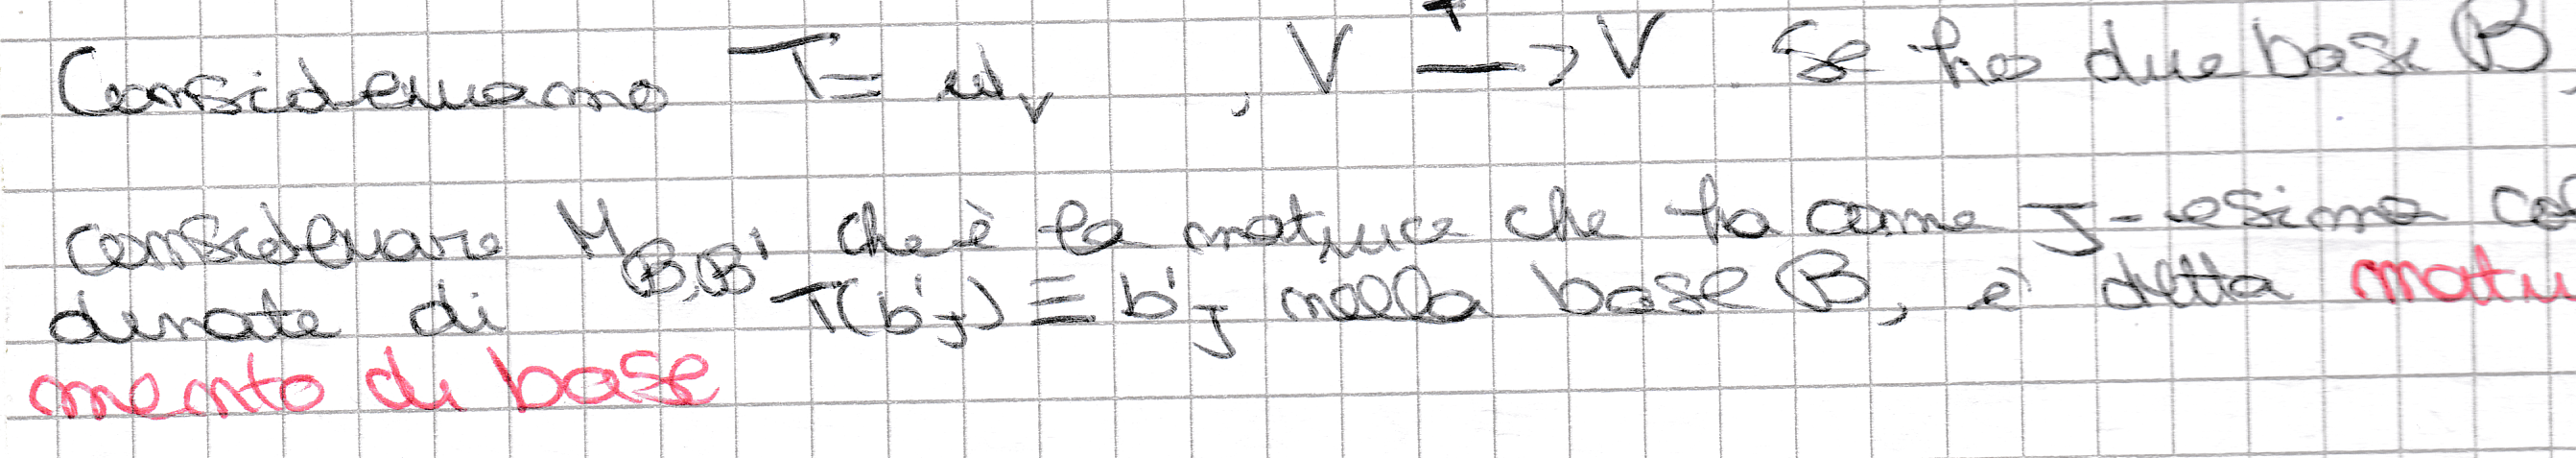 Consideriamo T = id_V , V T→ V. Se ho due basi B,
considerare M_B,B' che è la matrice che ha come J-esima col
dinate di T(b'_J) ≡ b'_J nella base B, è detta matri
mento di base